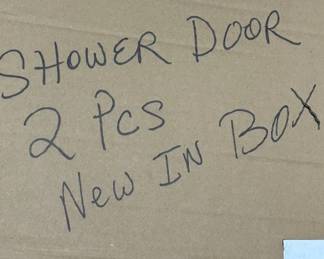 SHOWER DOOR
2 Pcs
New IN BOX